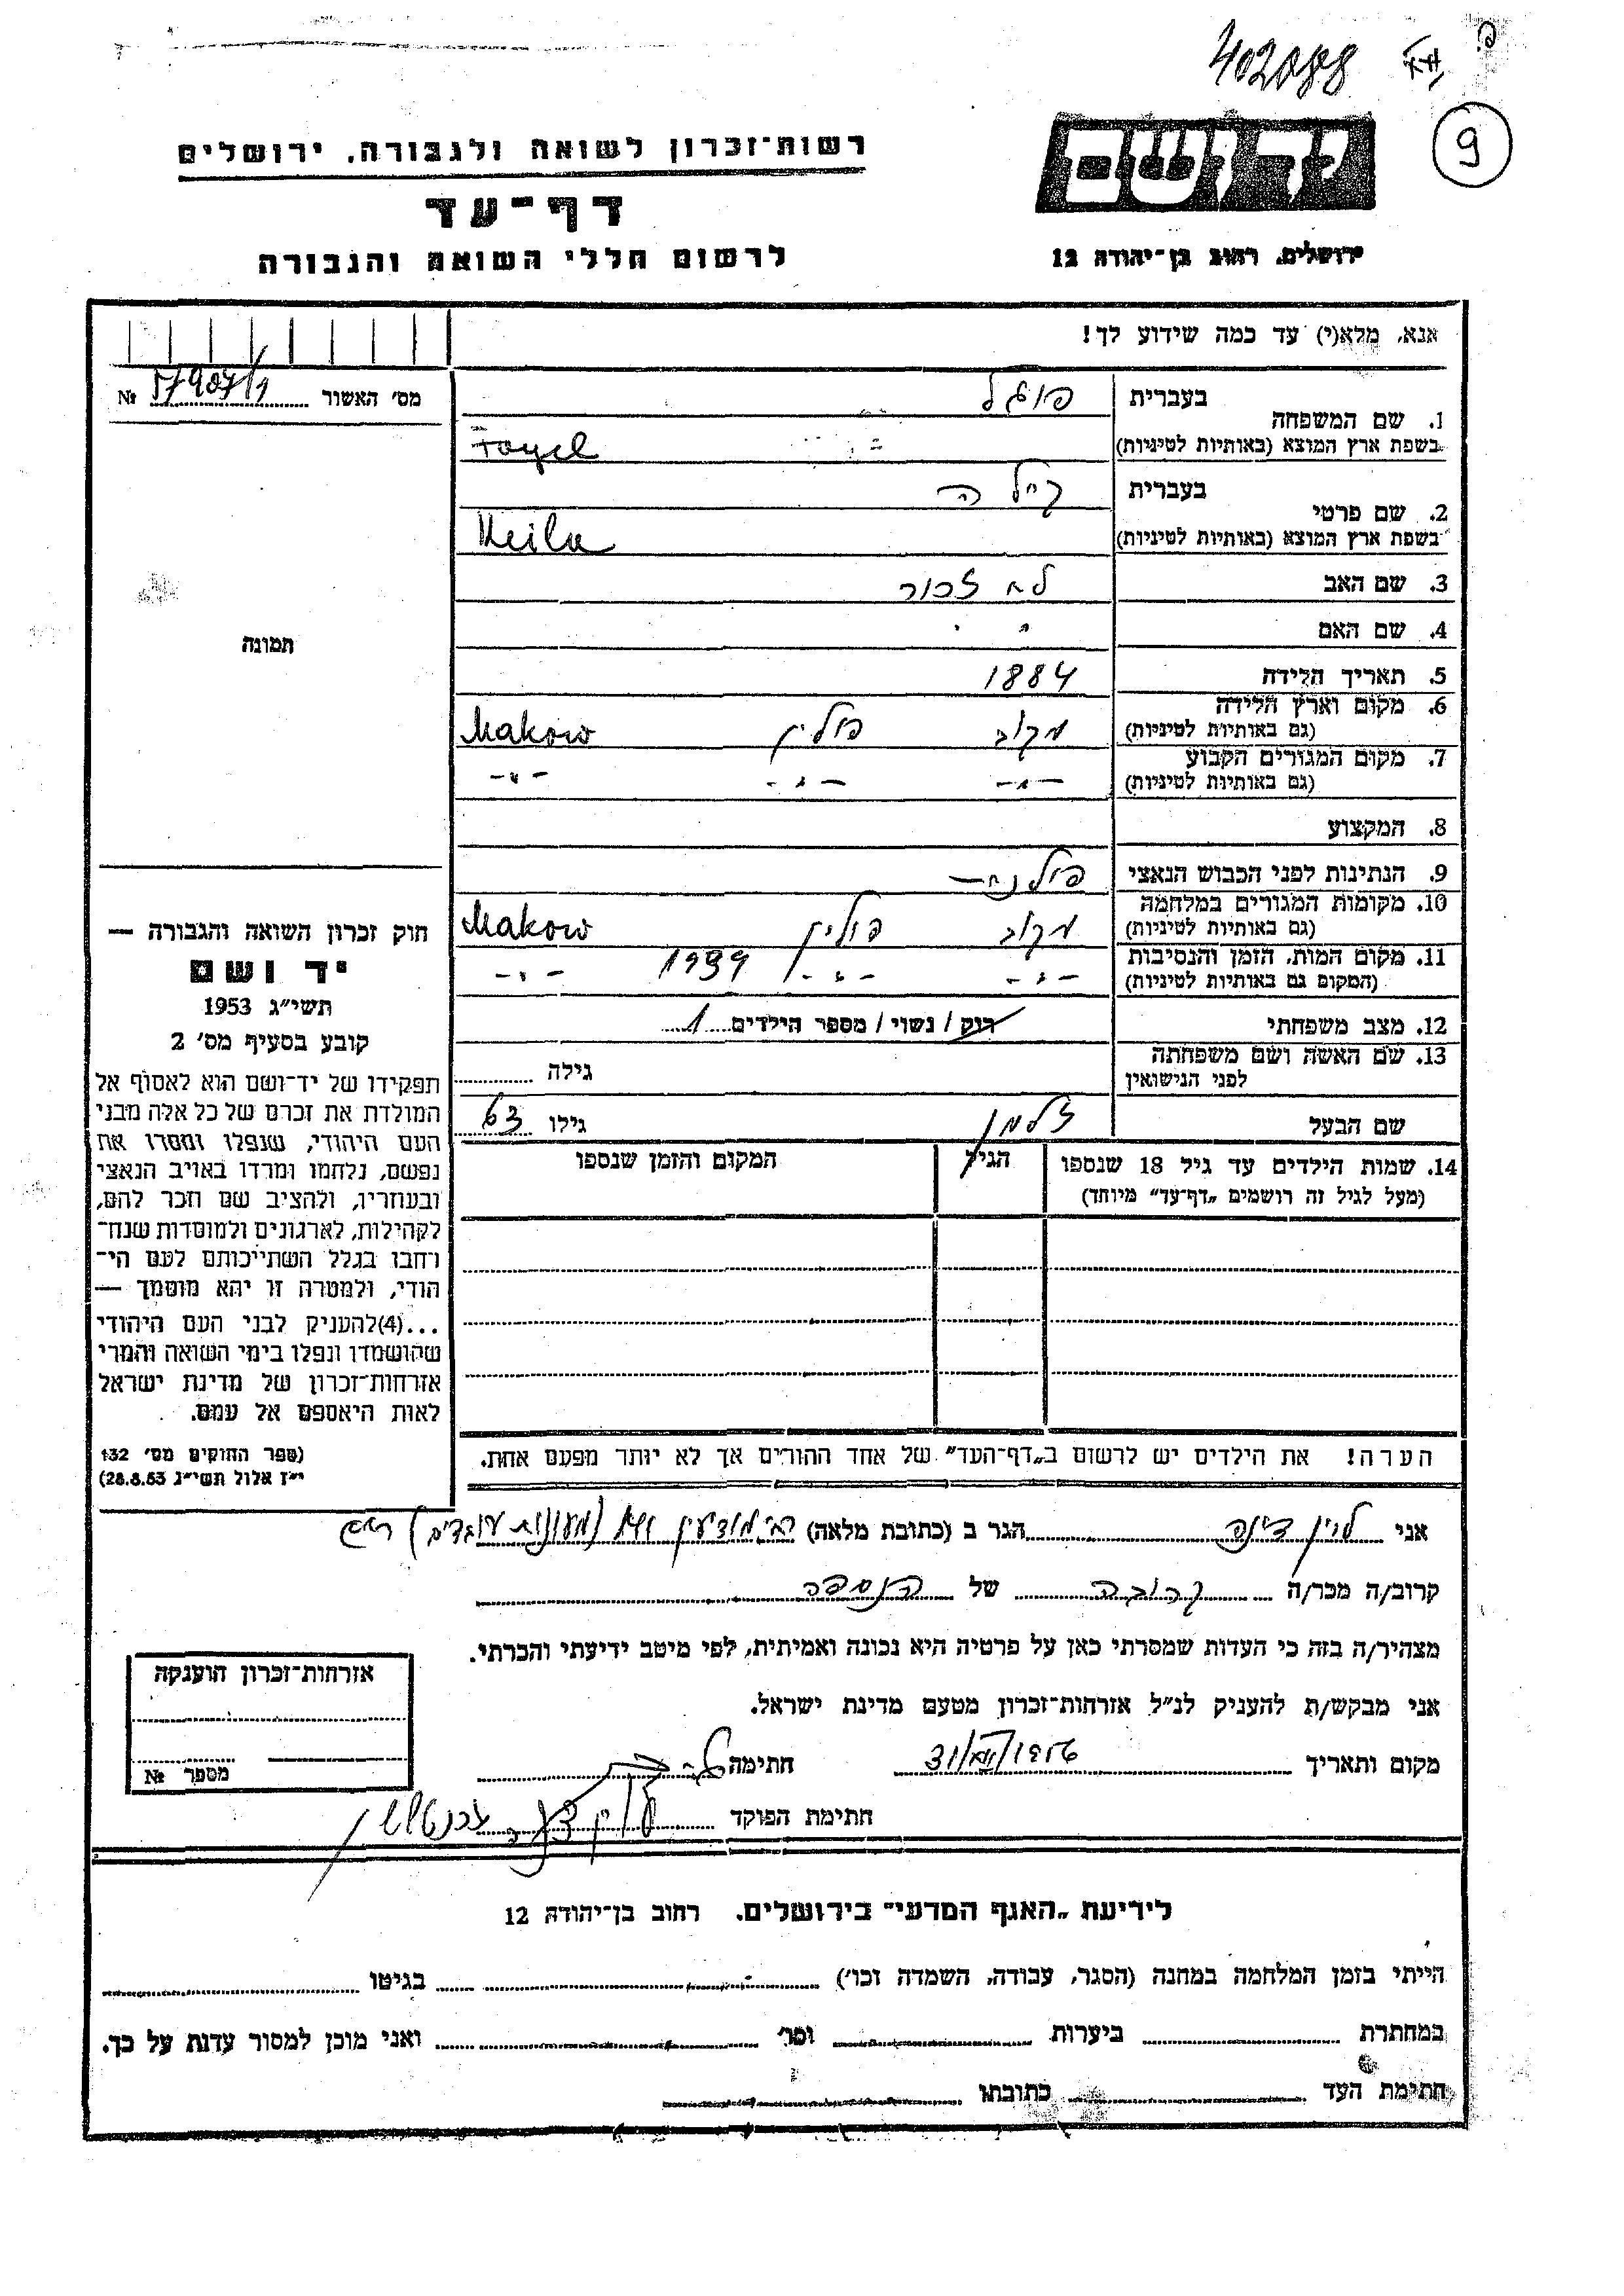 402088
9
יד ושם
ירושלים, רחוב בן־יהודה 12
רשות־זכרון לשואה ולגבורה, ירושלים
דף־עד
לרשום חללי השואה והגבורה
אנא, מלא(י) עד כמה שידוע לך!
מס׳ האשור 57907/1 №
תמונה
1. שם המשפחה
בעברית פוגל
בשפת ארץ המוצא (באותיות לטיניות) Fogel
2. שם פרטי
בעברית קיילה
בשפת ארץ המוצא (באותיות לטיניות) Keila
3. שם האב לא זכור
4. שם האם " "
5. תאריך הלידה 1884
6. מקום וארץ הלידה מקוב פולין Makow
(גם באותיות לטיניות)
7. מקום המגורים הקבוע -"- -"- -"-
(גם באותיות לטיניות)
8. המקצוע
9. הנתינות לפני הכבוש הנאצי פולנית
10. מקומות המגורים במלחמה מקוב פולין Makow
(גם באותיות לטיניות)
11. מקום המות, הזמן והנסיבות -"- -"- 1939 -"-
(המקום גם באותיות לטיניות)
12. מצב משפחתי רוק / נשוי / מספר הילדים 1
13. שם האשה ושם משפחתה גילה
לפני הנישואין
שם הבעל זלמן גילו 63
14. שמות הילדים עד גיל 18 שנספו הגיל המקום והזמן שנספו
(מעל לגיל זה רושמים „דף־עד" מיוחד)
הערה! את הילדים יש לרשום ב„דף־העד" של אחד ההורים אך לא יותר מפעם אחת.
חוק זכרון השואה והגבורה —
יד ושם
תשי״ג 1953
קובע בסעיף מס׳ 2
תפקידו של יד־ושם הוא לאסוף אל
המולדת את זכרם של כל אלה מבני
העם היהודי, שנפלו ומסרו את
נפשם, נלחמו ומרדו באויב הנאצי
ובעוזריו, ולהציב שם וזכר להם,
לקהילות, לארגונים ולמוסדות שנח־
רחבו בגלל השתייכותם לעם הי־
הודי, ולמטרה זו יהא מוסמך —
...(4)להעניק לבני העם היהודי
שהושמדו ונפלו בימי השואה והמרי
אזרחות־זכרון של מדינת ישראל
לאות היאספם אל עמם.
(ספר החוקים מס׳ 132
י״ז אלול תשי״ג 28.8.53)
אני לוין דינה הגר ב (כתובת מלאה) מודיעין (מעונות עובדים)
קרוב/ה מכר/ה קרובה של הנספה
מצהיר/ה בזה כי העדות שמסרתי כאן על פרטיה היא נכונה ואמיתית, לפי מיטב ידיעתי והכרתי.
אני מבקש/ת להעניק לנ״ל אזרחות־זכרון מטעם מדינת ישראל.
מקום ותאריך 31/VII/1956 חתימה
חתימת הפוקד
אזרחות־זכרון הוענקה
מספר №
לידיעת „האגף המדעי" בירושלים, רחוב בן־יהודה 12
הייתי בזמן המלחמה במחנה (הסגר, עבודה, השמדה וכו׳) בגיטו
במחתרת ביערות וכו׳ ואני מוכן למסור עדות על כך.
חתימת העד כתובתו